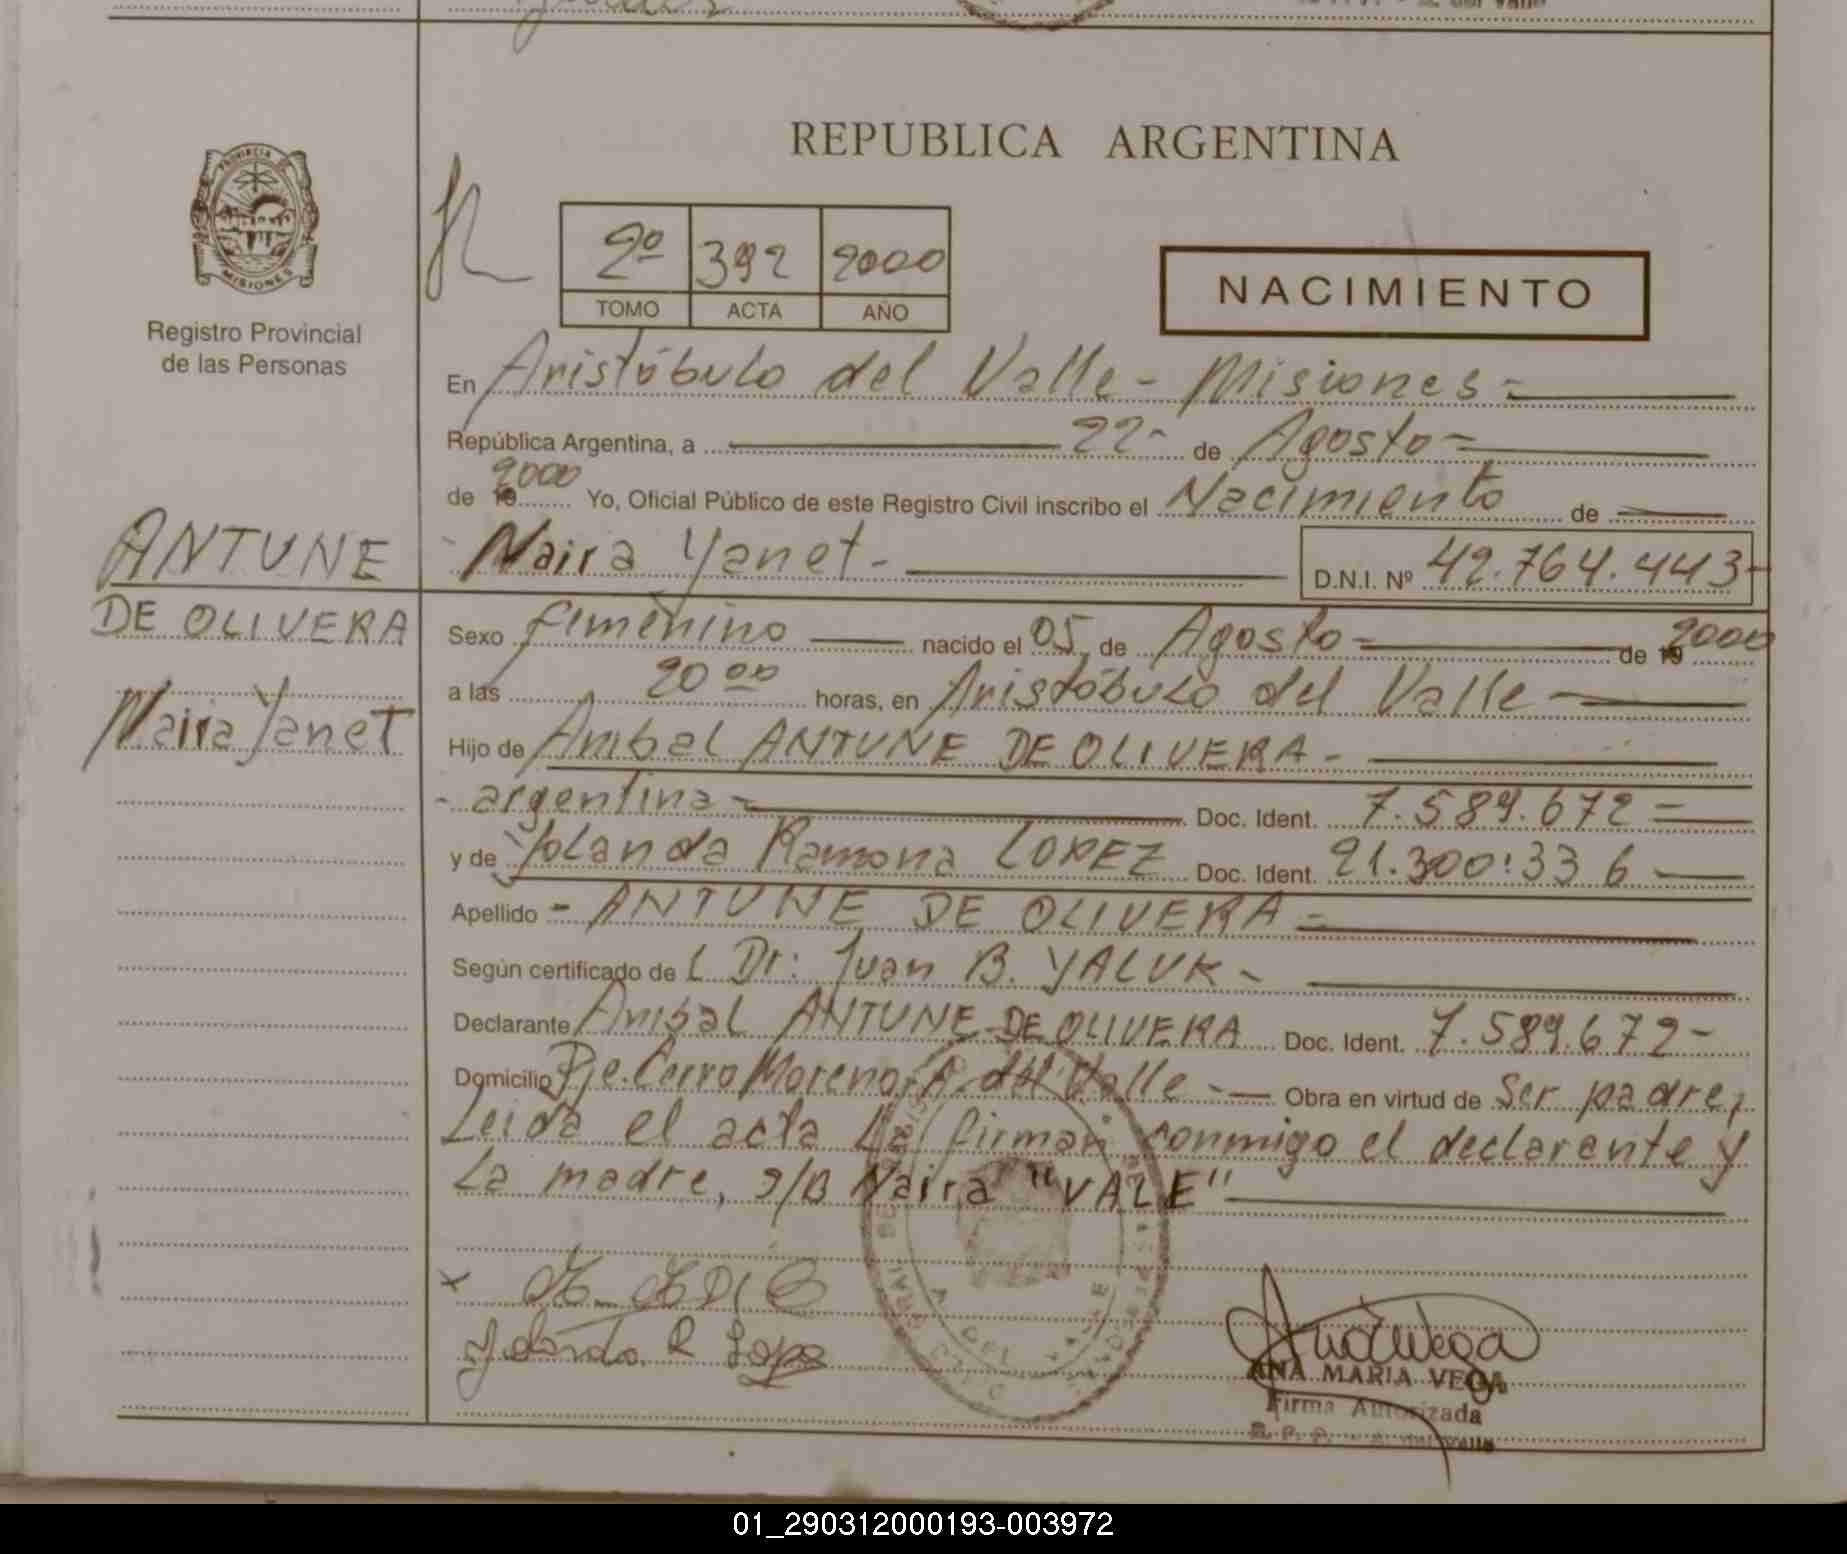 REPUBLICA ARGENTINA
PROVINCIA DE
MISIONES
Registro Provincial
de las Personas
2º 392 2000
TOMO ACTA AÑO
NACIMIENTO
En Aristóbulo del Valle - Misiones -
República Argentina, a 22 - de Agosto -
de 2000 Yo, Oficial Público de este Registro Civil inscribo el Nacimiento de
Naira Yanet - D.N.I. Nº 42.764.443 -
ANTUNE
DE OLIVERA
Naira Yanet
Sexo femenino nacido el 05 de Agosto - de 2000
a las 20 00 horas, en Aristóbulo del Valle
Hijo de Anibal ANTUNE DE OLIVERA -
- argentina - Doc. Ident. 7.589.672 =
y de Yolanda Ramona LOPEZ Doc. Ident. 21.300.336
Apellido - ANTUNE DE OLIVERA -
Según certificado de L Dr: Juan B. YALUK -
Declarante Anibal ANTUNE DE OLIVERA Doc. Ident. 7.589.672 -
Domicilio Pje. Cerro Moreno, A. del Valle - Obra en virtud de ser padre,
Leida el acta la firman conmigo el declarante y
la madre, s/B Naira "VALE"
Yolanda R Lopez
ANA MARIA VEGA
Firma Autorizada
01_290312000193-003972